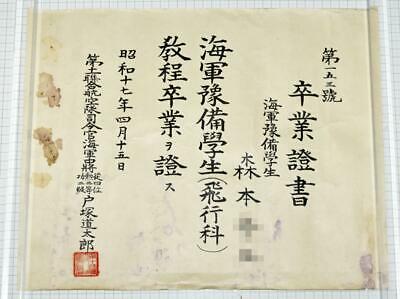 第一五三號
卒業證書
海軍豫備學生
森本
海軍豫備學生(飛行科)
教程卒業ヲ證ス
昭和十七年四月十五日
第十二聯合航空隊司令官海軍中將從四位勲二等功三級戸塚道太郎